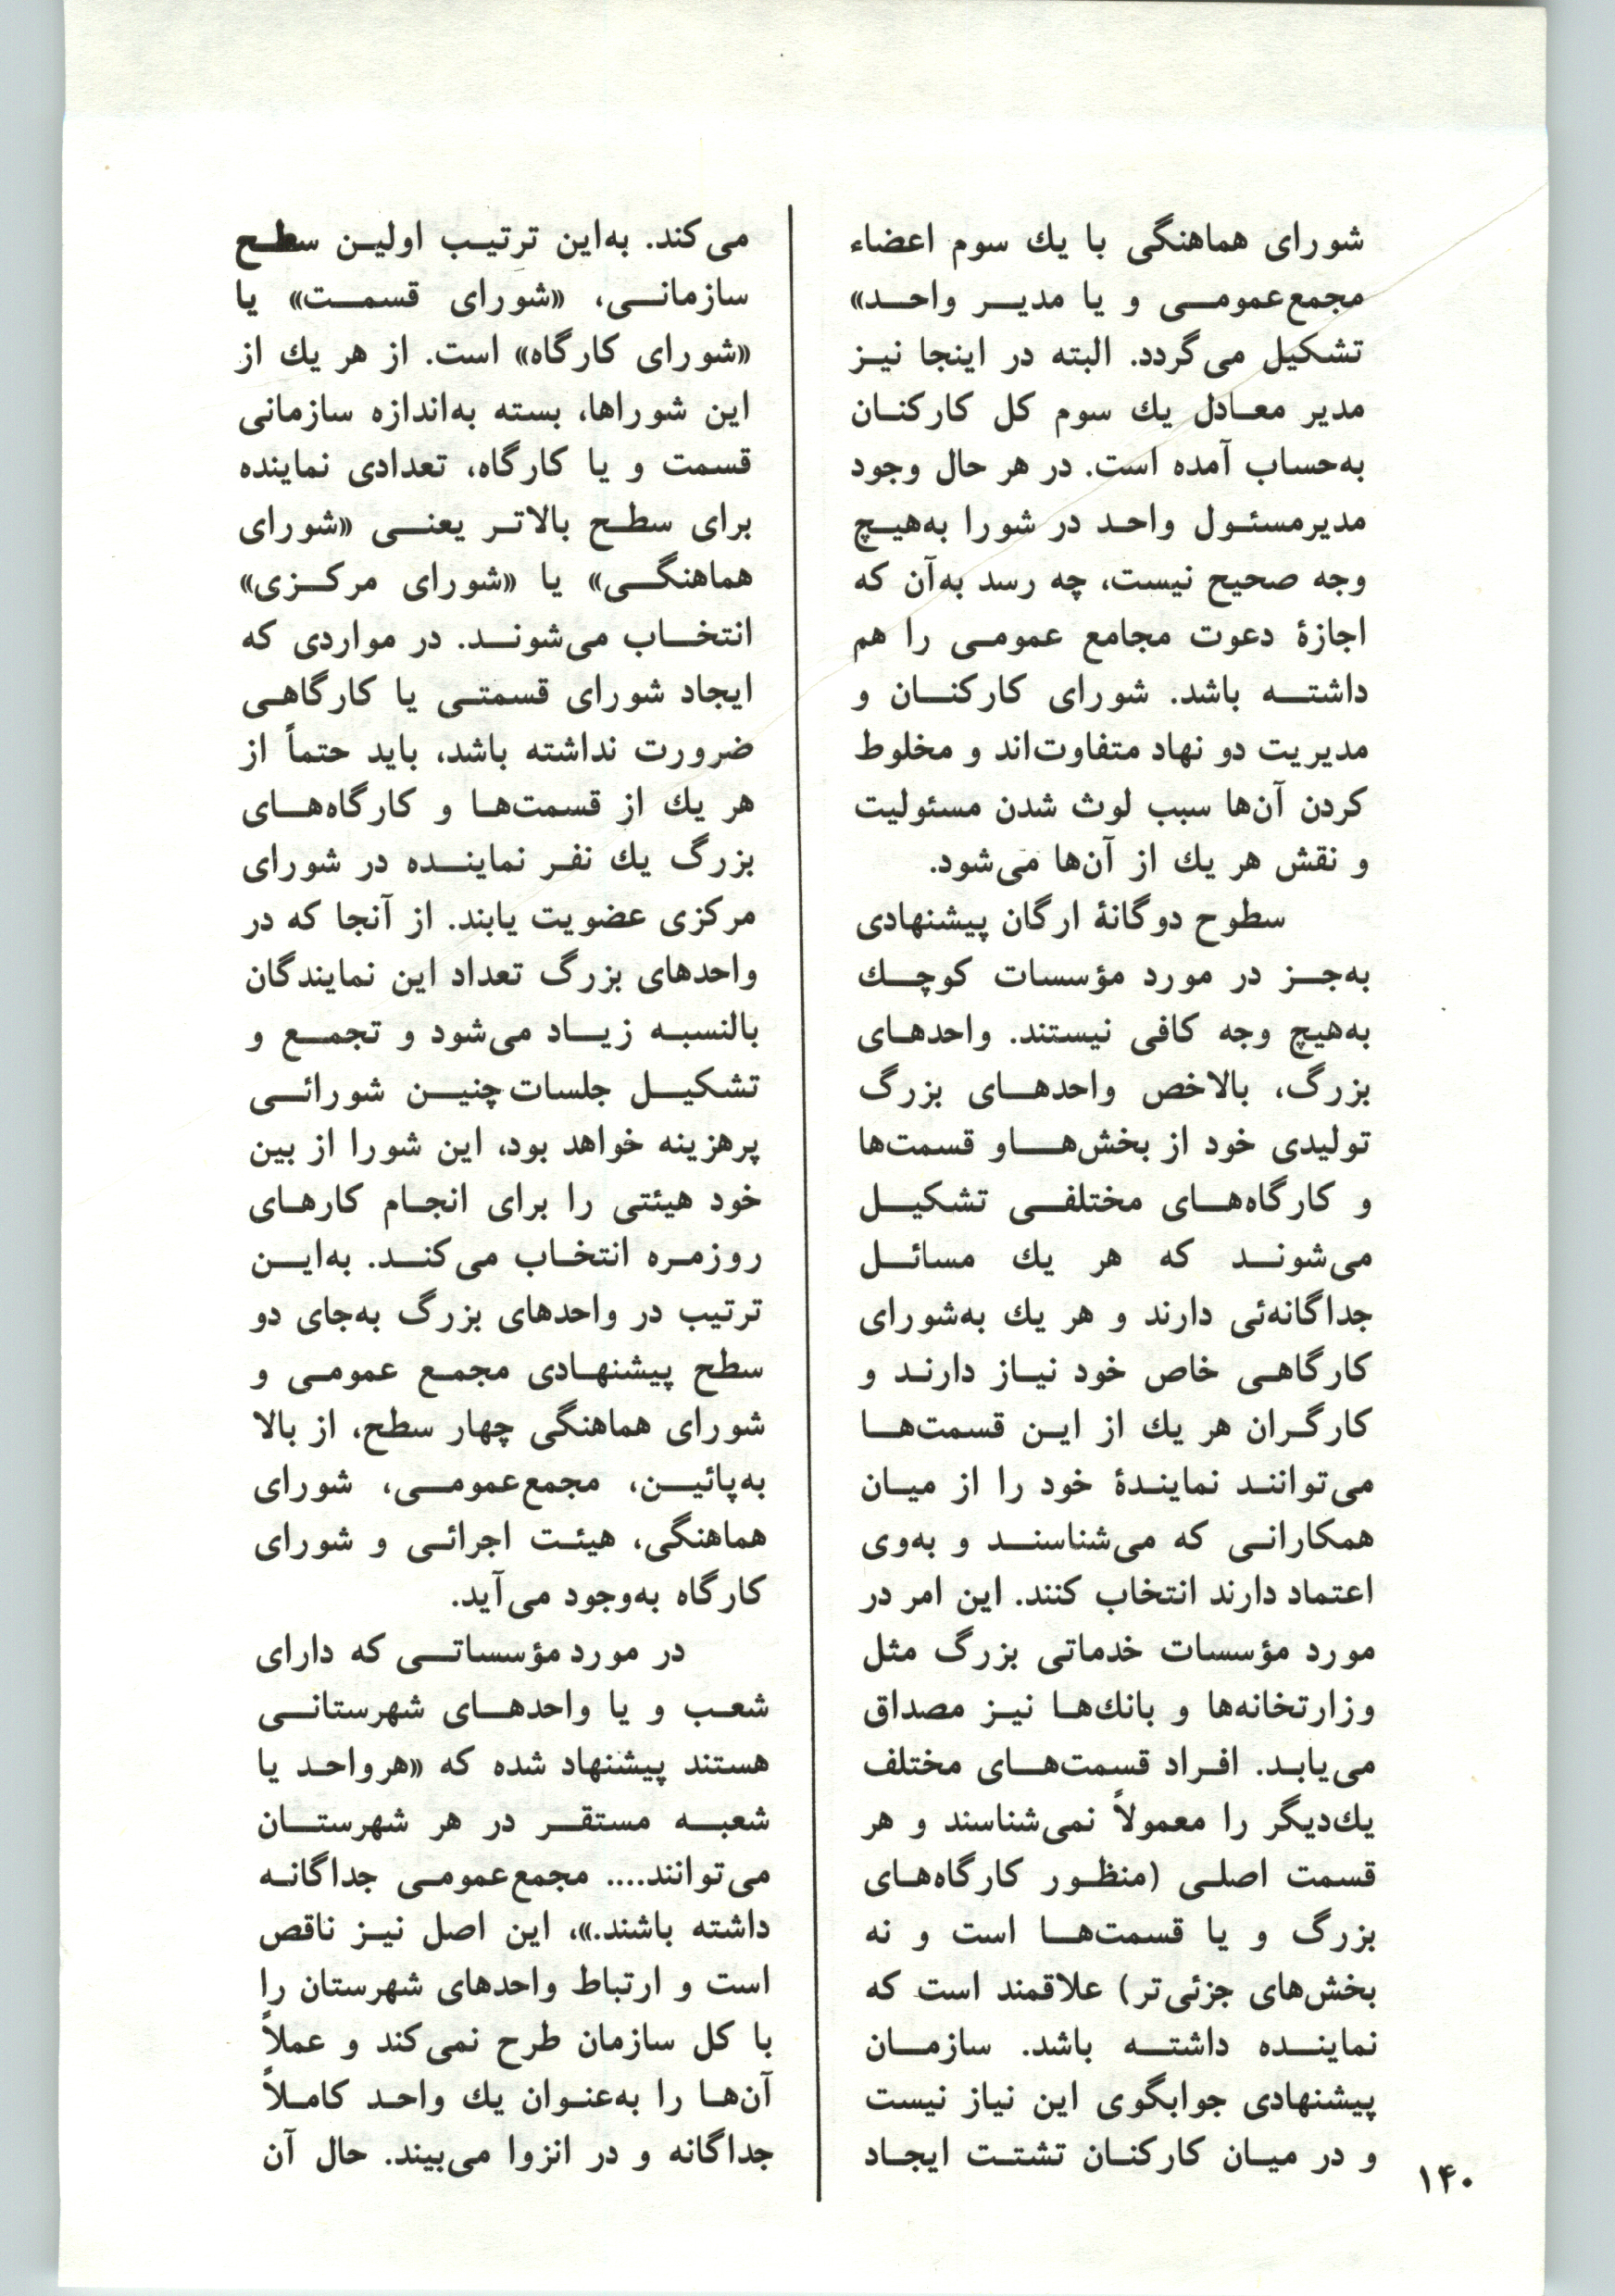 شورای هماهنگی با یك سوم اعضاء
مجمع‌عمومی و یا مدیر واحد»
تشکیل می‌گردد. البته در اینجا نیز
مدیر معادل یك سوم کل کارکنان
به‌حساب آمده است. در هر حال وجود
مدیرمسئول واحد در شورا به‌هیچ
وجه صحیح نیست، چه رسد به‌آن که
اجازهٔ دعوت مجامع عمومی را هم
داشته باشد. شورای کارکنان و
مدیریت دو نهاد متفاوت‌اند و مخلوط
کردن آن‌ها سبب لوث شدن مسئولیت
و نقش هر یك از آن‌ها می‌شود.
سطوح دوگانهٔ ارگان پیشنهادی
به‌جز در مورد مؤسسات کوچك
به‌هیچ وجه کافی نیستند. واحدهای
بزرگ، بالاخص واحدهای بزرگ
تولیدی خود از بخش‌هاو قسمت‌ها
و کارگاه‌های مختلفی تشکیل
می‌شوند که هر یك مسائل
جداگانه‌ئی دارند و هر یك به‌شورای
کارگاهی خاص خود نیاز دارند و
کارگران هر یك از این قسمت‌ها
می‌توانند نمایندهٔ خود را از میان
همکارانی که می‌شناسند و به‌وی
اعتماد دارند انتخاب کنند. این امر در
مورد مؤسسات خدماتی بزرگ مثل
وزارتخانه‌ها و بانك‌ها نیز مصداق
می‌یابد. افراد قسمت‌های مختلف
یك‌دیگر را معمولاً نمی‌شناسند و هر
قسمت اصلی (منظور کارگاه‌های
بزرگ و یا قسمت‌ها است و نه
بخش‌های جزئی‌تر) علاقمند است که
نماینده داشته باشد. سازمان
پیشنهادی جوابگوی این نیاز نیست
و در میان کارکنان تشتت ایجاد
می‌کند. به‌این ترتیب اولین سطح
سازمانی، «شورای قسمت» یا
«شورای کارگاه» است. از هر یك از
این شوراها، بسته به‌اندازه سازمانی
قسمت و یا کارگاه، تعدادی نماینده
برای سطح بالاتر یعنی «شورای
هماهنگی» یا «شورای مرکزی»
انتخاب می‌شوند. در مواردی که
ایجاد شورای قسمتی یا کارگاهی
ضرورت نداشته باشد، باید حتماً از
هر یك از قسمت‌ها و کارگاه‌های
بزرگ یك نفر نماینده در شورای
مرکزی عضویت یابند. از آنجا که در
واحدهای بزرگ تعداد این نمایندگان
بالنسبه زیاد می‌شود و تجمع و
تشکیل جلسات چنین شورائی
پرهزینه خواهد بود، این شورا از بین
خود هیئتی را برای انجام کارهای
روزمره انتخاب می‌کند. به‌این
ترتیب در واحدهای بزرگ به‌جای دو
سطح پیشنهادی مجمع عمومی و
شورای هماهنگی چهار سطح، از بالا
به‌پائین، مجمع‌عمومی، شورای
هماهنگی، هیئت اجرائی و شورای
کارگاه به‌وجود می‌آید.
در مورد مؤسساتی که دارای
شعب و یا واحدهای شهرستانی
هستند پیشنهاد شده که «هرواحد یا
شعبه مستقر در هر شهرستان
می‌توانند.... مجمع‌عمومی جداگانه
داشته باشند.»، این اصل نیز ناقص
است و ارتباط واحدهای شهرستان را
با کل سازمان طرح نمی‌کند و عملاً
آن‌ها را به‌عنوان یك واحد کاملاً
جداگانه و در انزوا می‌بیند. حال آن
۱۴۰